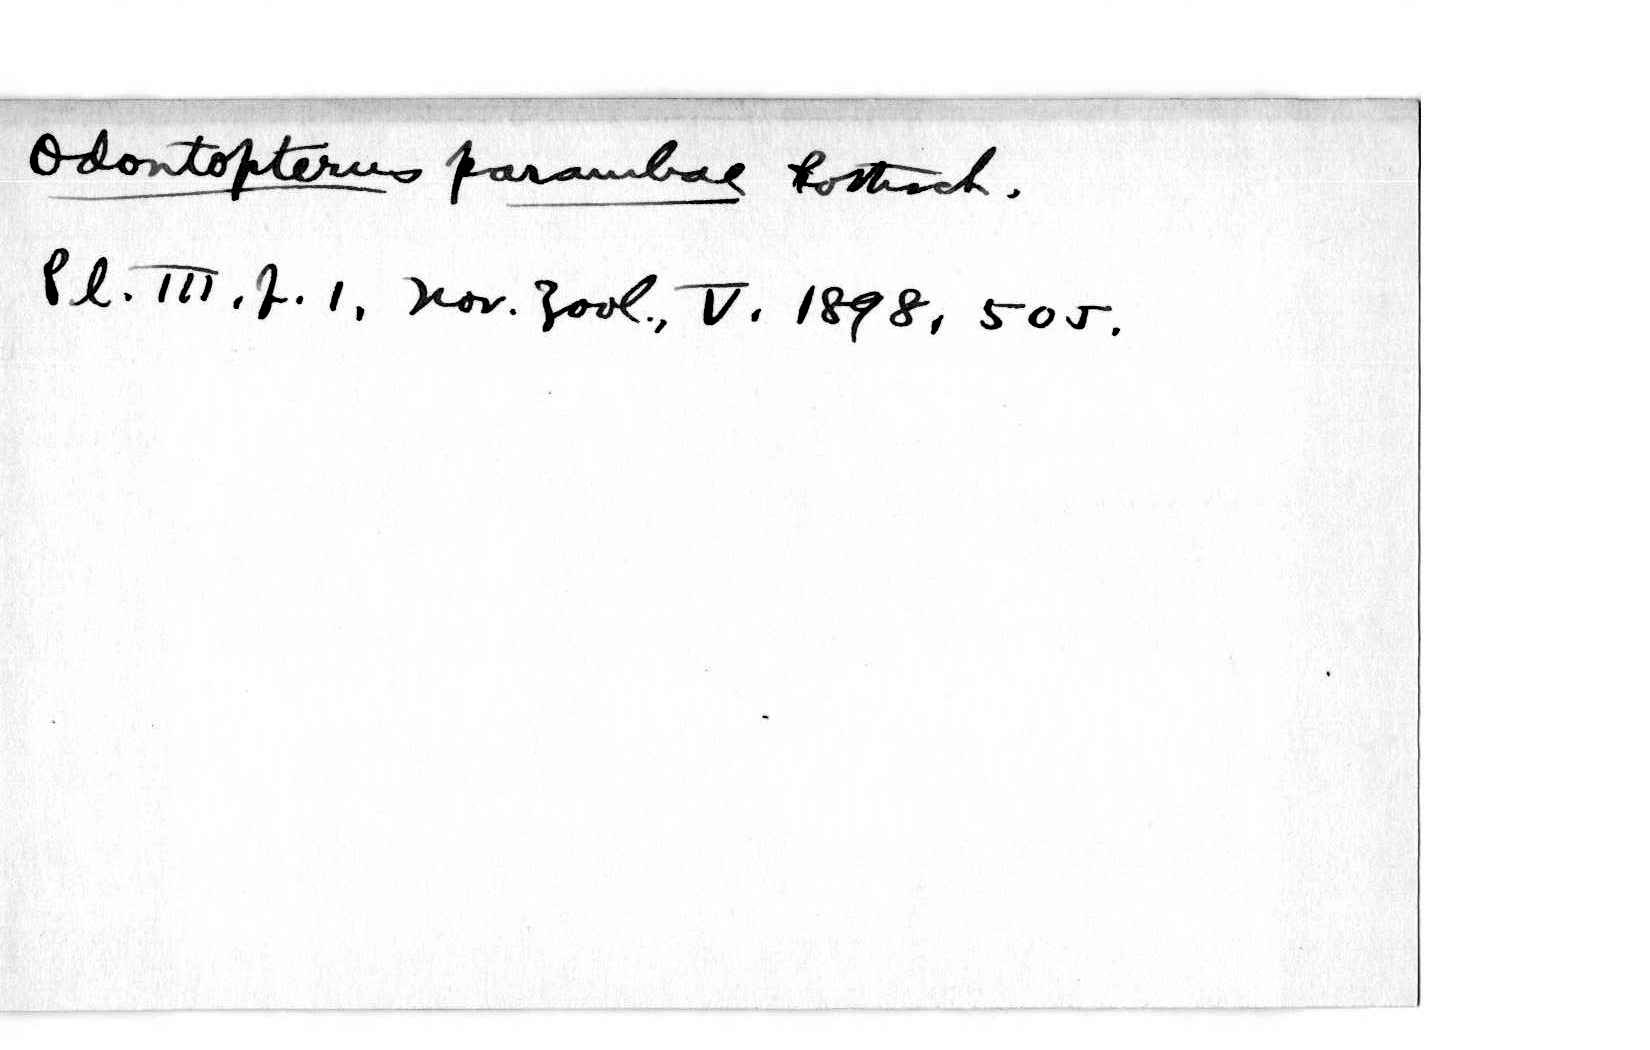 Odontopterus parambae Rothsch.
Pl. III. f. 1, Nov. Zool., V. 1898, 505.